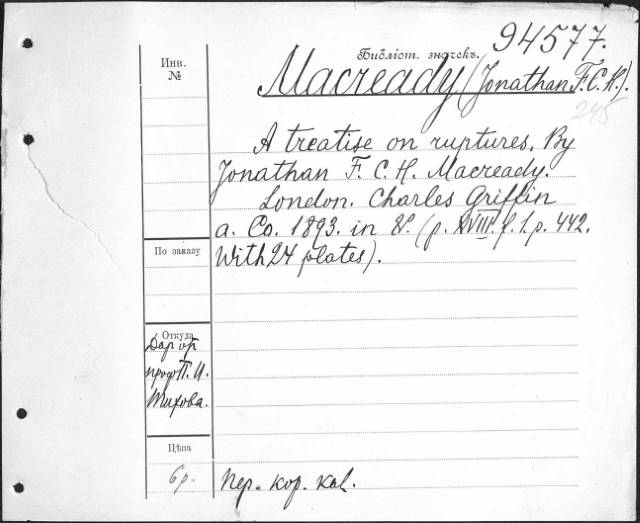 94577.
Библіот. значекъ.
Инв.
№
Macready (Jonathan F. C. H.).
245
A treatise on ruptures. By
Jonathan F. C. H. Macready.
London. Charles Griffin
a. Co. 1893. in 8°. (p. XVIII. f. 1. p. 442.
With 24 plates).
По заказу
Откуда
Дар от
проф. П. И.
Тихова.
Цѣна
6 р.
Пер. кор. кал.